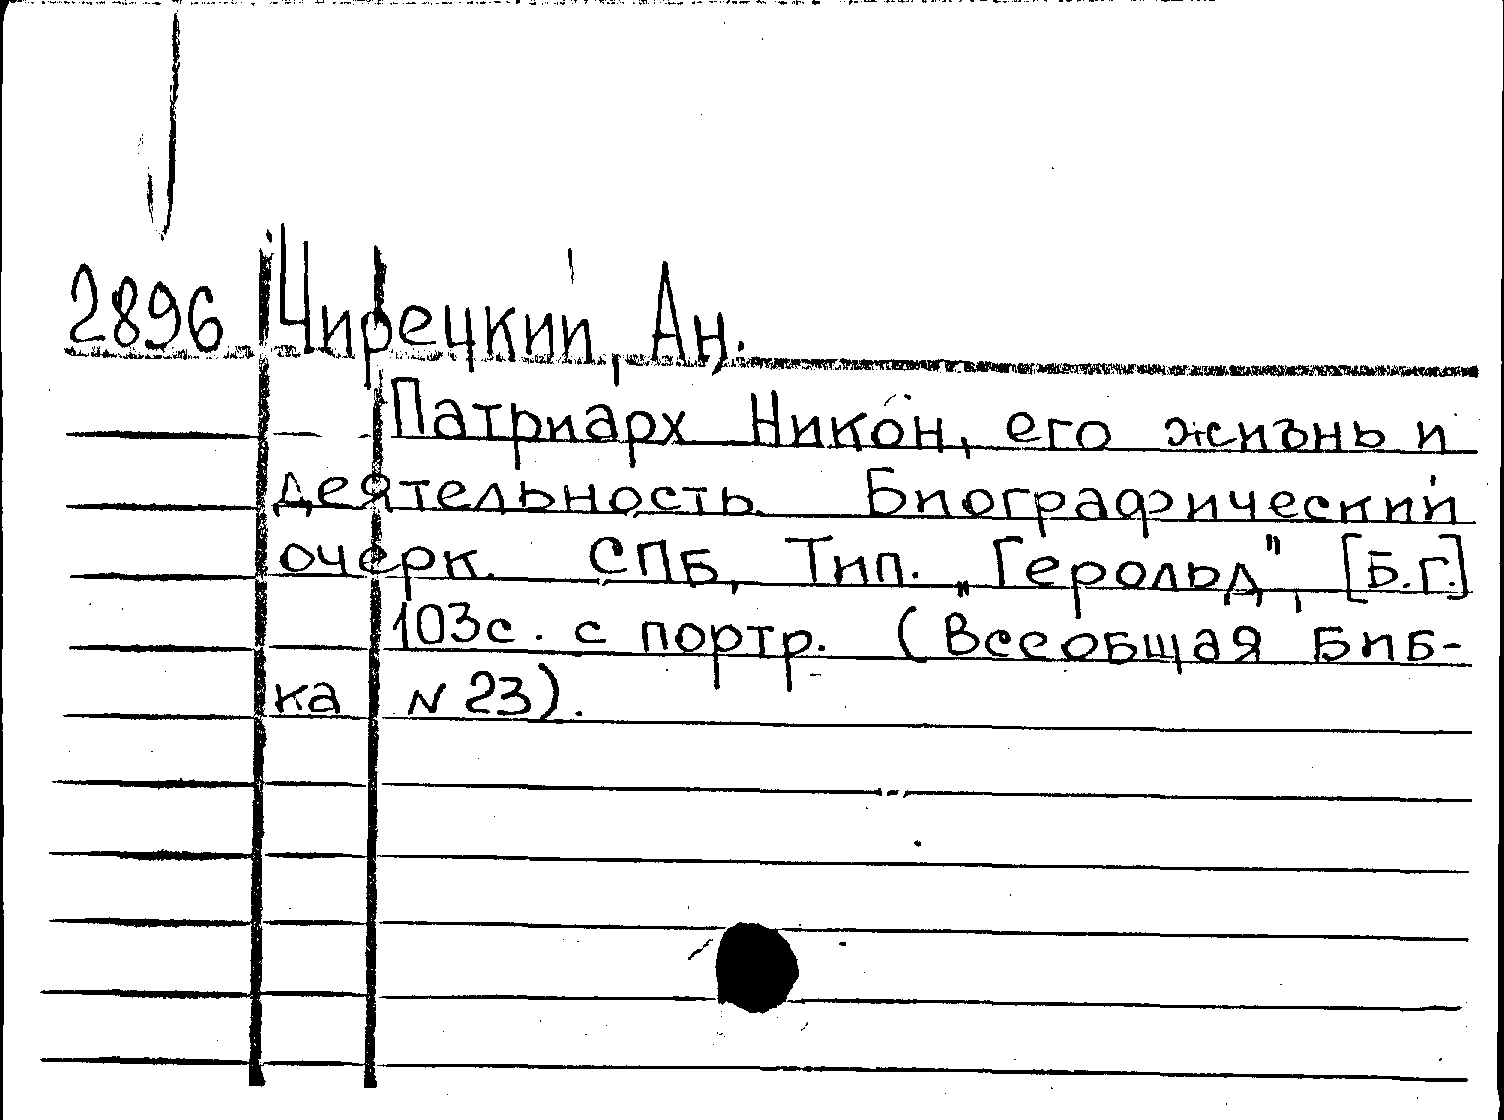 2896 Чирецкий, Ан.
Патриарх Никон, его жизнь и
деятельность. Биографический
очерк. СПБ, Тип. „Герольд", [Б.г.]
103с. с портр. (Всеобщая биб-
ка N 23).